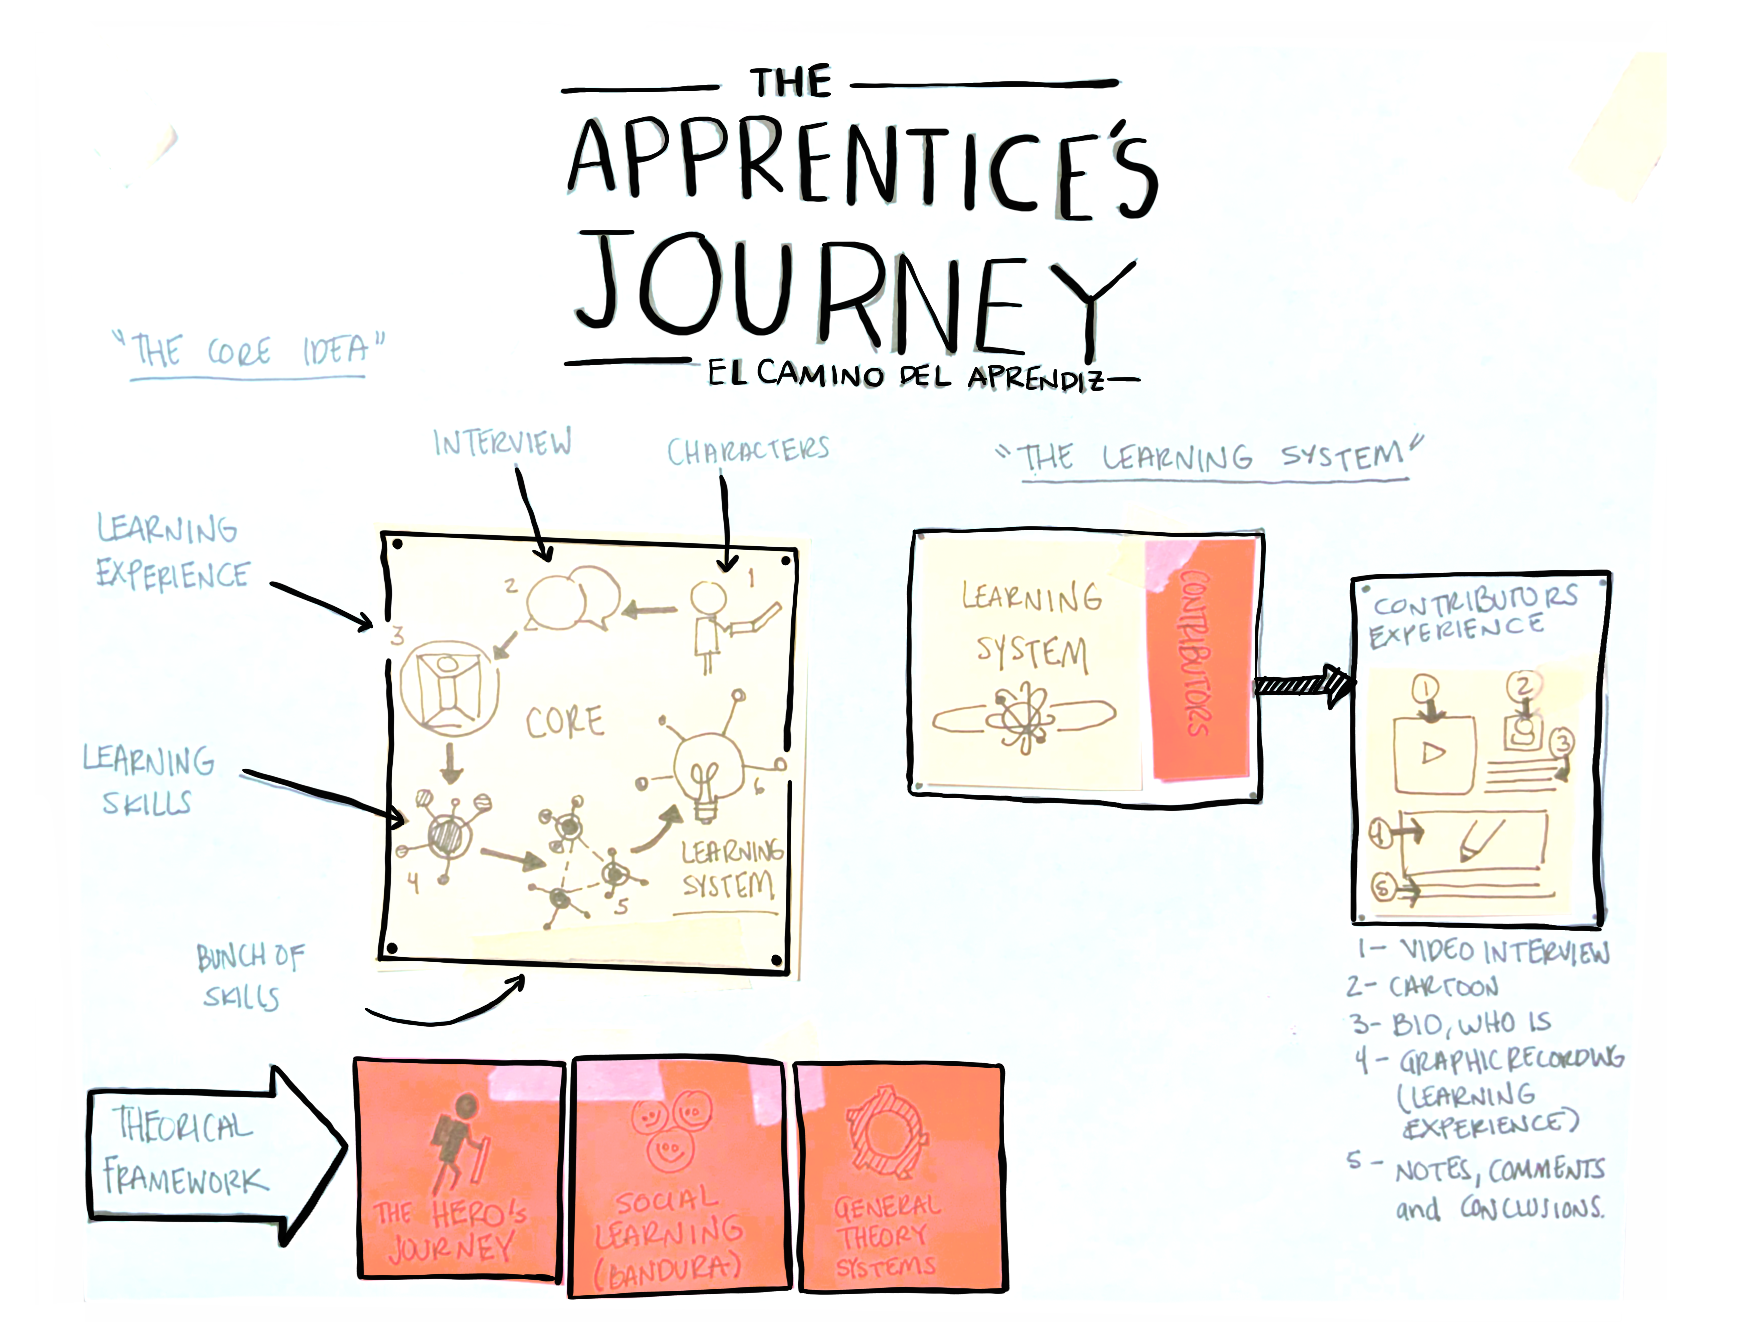 THE
APPRENTICE'S
JOURNEY
EL CAMINO DEL APRENDIZ
"THE CORE IDEA"
INTERVIEW
CHARACTERS
LEARNING
EXPERIENCE
LEARNING
SKILLS
BUNCH OF
SKILLS
1
2
3
CORE
4
5
6
LEARNING
SYSTEM
"THE LEARNING SYSTEM"
LEARNING
SYSTEM
CONTRIBUTORS
CONTRIBUTORS
EXPERIENCE
1
2
3
4
5
1- VIDEO INTERVIEW
2- CARTOON
3- BIO, WHO IS
4- GRAPHIC RECORDING
(LEARNING
EXPERIENCE)
5- NOTES, COMMENTS
and CONCLUSIONS.
THEORICAL
FRAMEWORK
THE HERO'S
JOURNEY
SOCIAL
LEARNING
(BANDURA)
GENERAL
THEORY
SYSTEMS